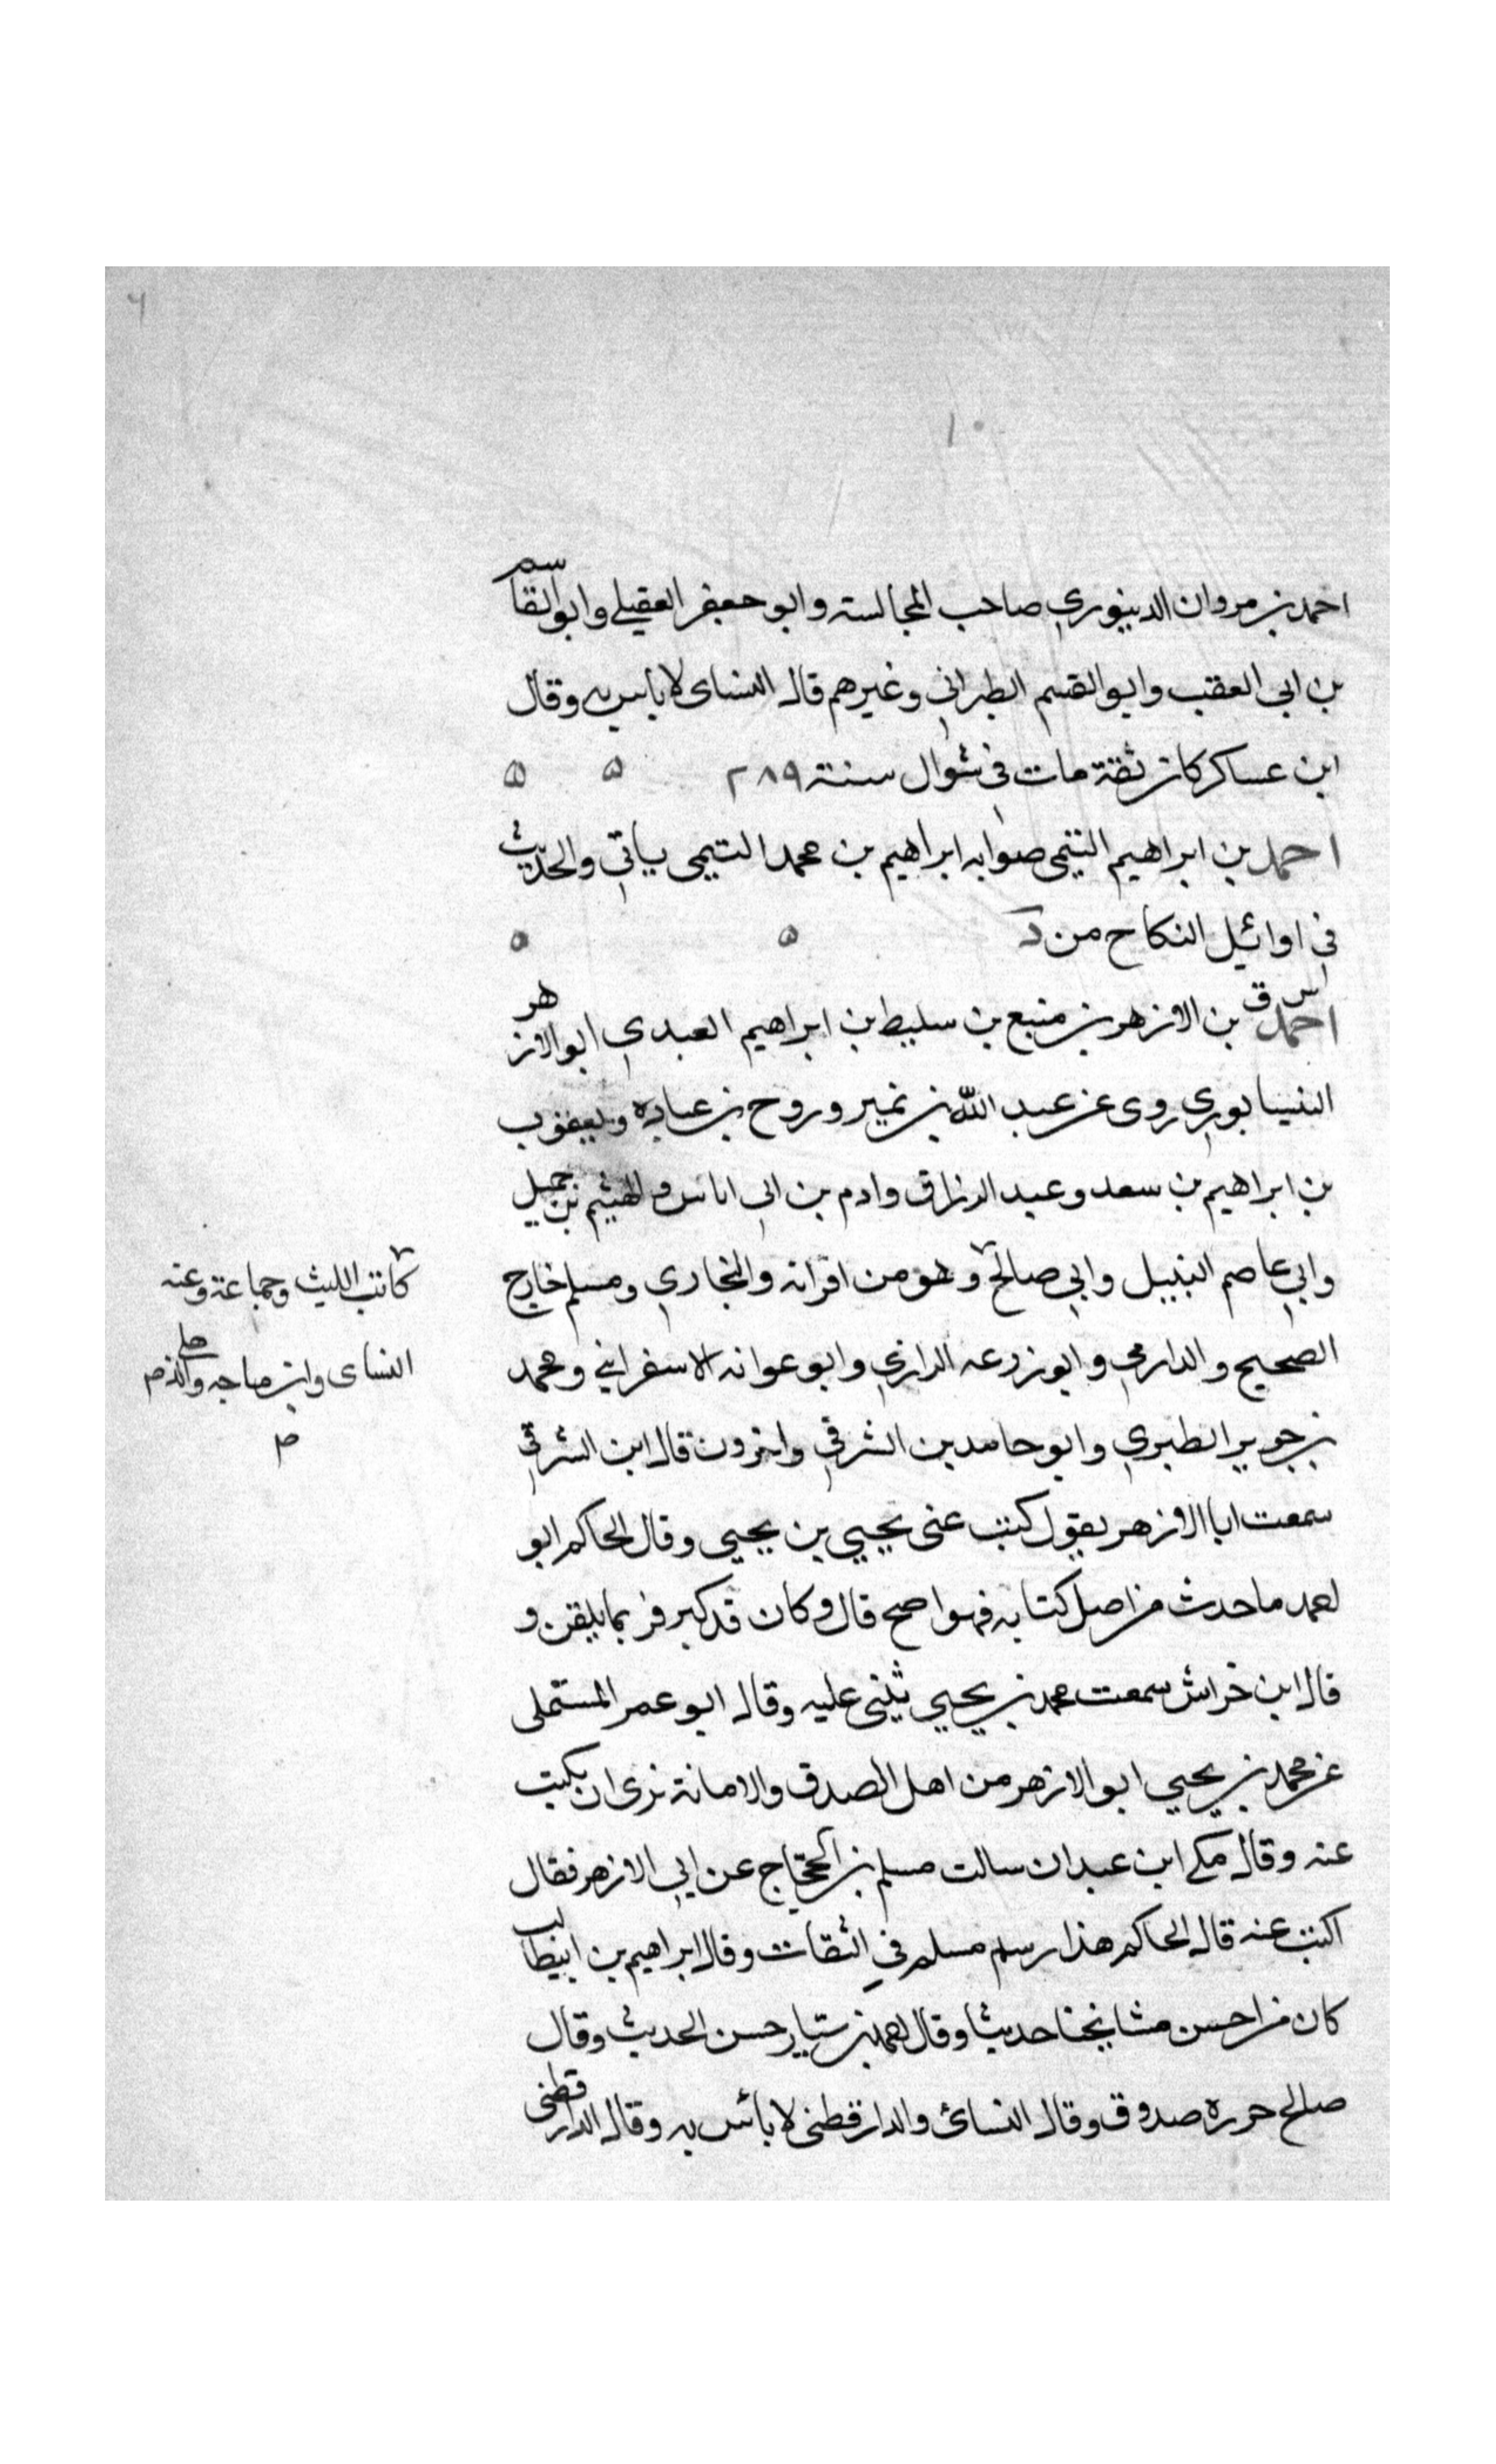 ٦
١٠
احمد بن مروان الدينوري صاحب المجالسة وابو جعفر العقيلي وابو القاسم
بن ابي العقب وابو القسم الطبراني وغيرهم قال النساى لا باس به وقال
ابن عساكر كان ثقة مات في شوال سنة ٢٨٩ ۵ ۵
احمد بن ابراهيم التيمى صوابه ابراهيم بن محمد التيمى ياتي والحديث
في اوائيل النكاح من د ۵ ۵
س ق
احمد بن الازهر بن منيع بن سليط بن ابراهيم العبدي ابو الازهر
النيسابوري روى عن عبد الله بن نمير وروح بن عبادة ويعقوب
بن ابراهيم بن سعد وعبد الرزاق وادم بن ابي اياس والهيثم بن جميل
وابي عاصم النبيل وابي صالح وهو من اقرانه والبخاري ومسلم خارج
كاتب الليث وجماعة وعنه
الصحيح والدارمي وابو زرعه الرازي وابو عوانه الاسفرايني ومحمد
النساى وابن ماجه والذهلي
صح
بن جرير الطبري وابو حامد بن الشرقي واخرون قال ابن الشرقي
سمعت ابا الازهر يقول كتب عنى يحيي بن يحيى وقال الحاكم ابو
احمد ما حدث من اصل كتابه فهو اصح قال وكان قد كبر فربما يلقن و
قال ابن خراش سمعت محمد بن يحيي يثنى عليه وقال ابو عمر المستملى
عن محمد بن يحيي ابو الازهر من اهل الصدق والامانة نرى ان يكتب
عنه وقال مكي ابن عبدان سالت مسلم بن الحجاج عن ابي الازهر فقال
اكتب عنه قال الحاكم هذا رسم مسلم في الثقات وقال ابراهيم بن ابيطالب
كان من احسن مشايخنا حديثا وقال احمد بن سيار حسن الحديث وقال
صالح جزرة صدوق وقال النسائ والدارقطنى لا باس به وقال الدارقطنى